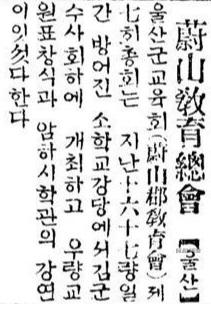 蔚山敎育總會 【울산】
울산군교육회(蔚山郡敎育會)제
七회총회는 지난十六十七량일
간 방어진 소학교강당에서김군
수사회하에 개최하고 우량교
원표창식과 암하시학관의 강연
이잇섯다한다